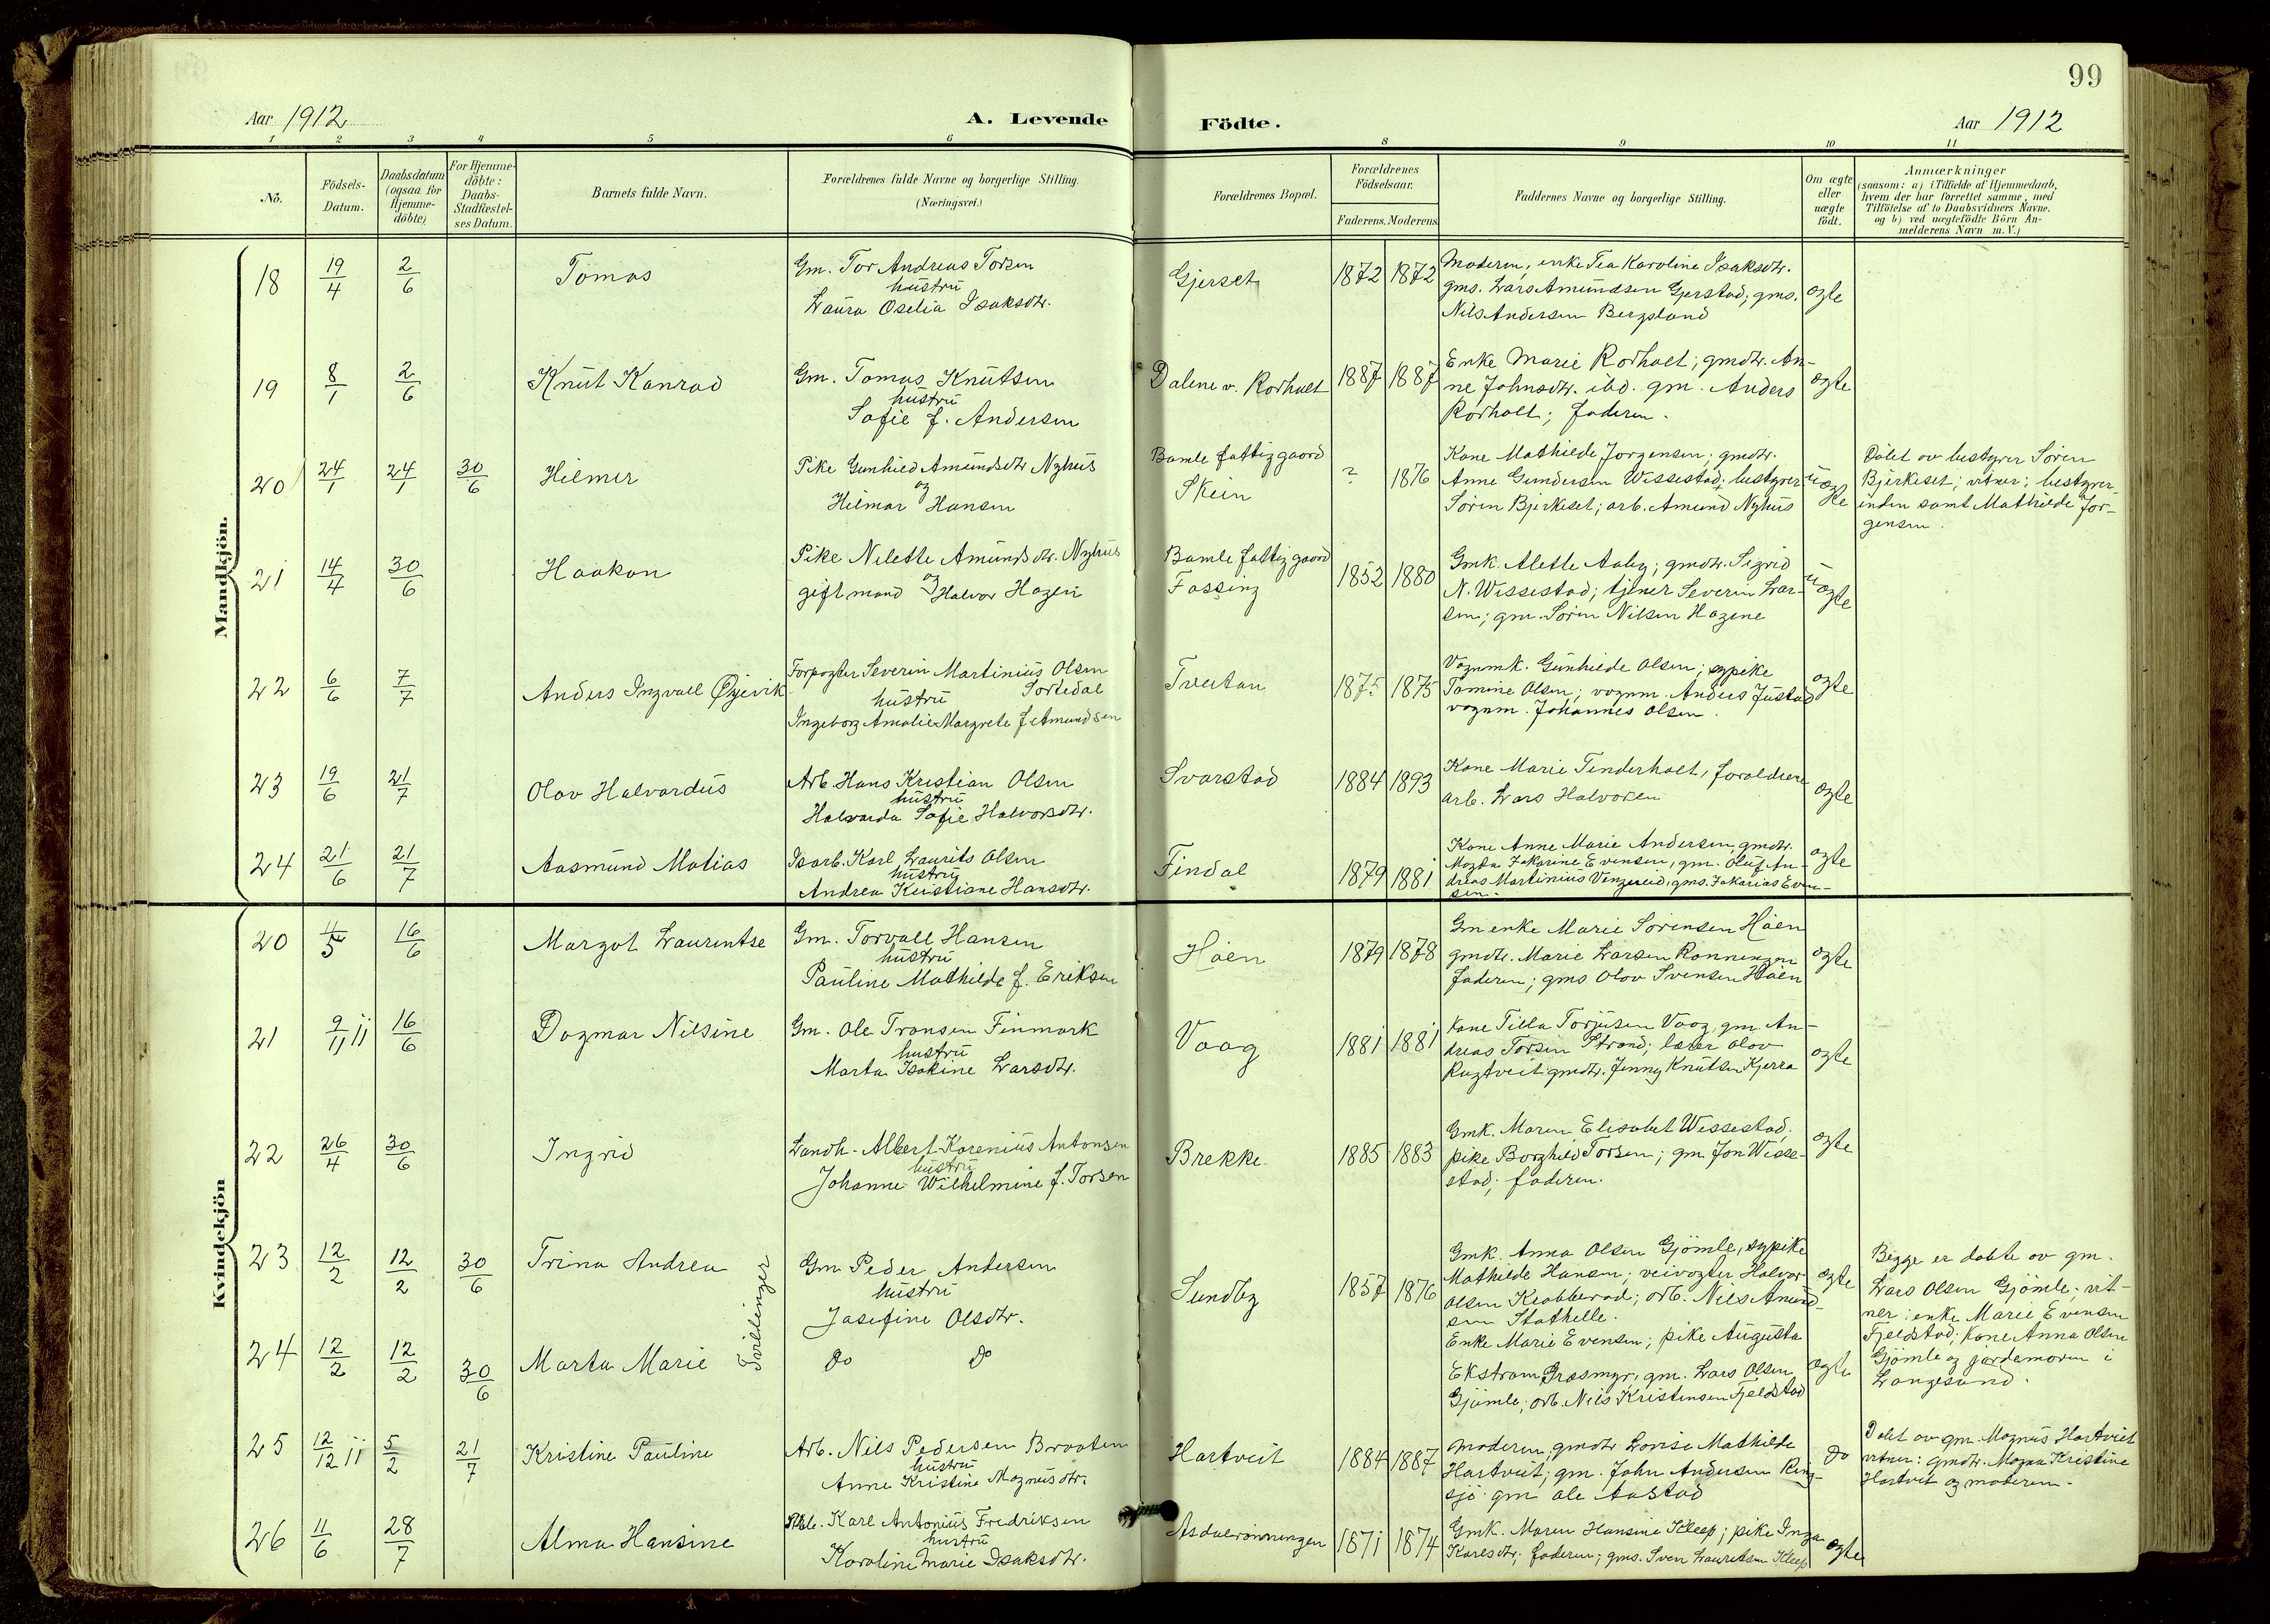 99
Aar 1912
A. Levende Födte.
Aar 1912
1 2 3 4 5 6 8 9 10 11
No.
Födsels-
Datum.
Daabsdatum
(ogsaa for
Hjemme-
döbte)
For Hjemme-
döbte:
Daabs-
Stadfæstel-
ses Datum.
Barnets fulde Navn.
Forældrenes fulde Navne og borgerlige Stilling.
(Næringsvei.)
Forældrenes Bopæl.
Forældrenes
Födselsaar.
Faderens. Moderens.
Faddernes Navne og borgerlige Stilling.
Om ægte
eller
uægte
födt.
Anmærkninger
(saasom: a) i Tilfælde af Hjemmedaab,
hvem der har forrettet samme, med
Tilföielse af to Daabsvidners Navne.
og b) ved uægtefödte Börn An-
melderens Navn m.V.)
Mandkjön.
18 19/4 2/6 Tomas
Gm. Tor Andreas Torsen
hustru
Laura Oselia Isaksdtr.
Gjerset 1872 1872
Moderen, enke Tea Karoline Isaksdtr.
gms. Lars Amundsen Gjerstad; gms.
Nils Andersen Bergsland
ægte
19 8/1 2/6 Knut Konrad
Gm. Tomas Knutsen
hustru
Sofie f. Andersen
Dalene v. Rorholt 1887 1887
Enke Marie Rorholt; gmdtr. An-
ne Johnsdtr. ibd. gm. Anders
Rorholt; faderen.
ægte
20 24/1 24/1 30/6 Hilmer
Pike Gunhild Amundsdtr Nyhus
og
Hilmar Hansen
Bamle fattiggaard
Skien
? 1876
Kone Mathilde Jorgensen; gmdtr.
Anne Gundersen Wissestad; bestyrer
Sören Bjerkeset; arb. Amund Nyhus
uægte
Döbt av bestyrer Sören
Bjerkeset; vitner; bestyrer-
inden samt Mathilde Jor-
gensen.
21 14/4 30/6 Haakon
Pike Nilette Amundsdtr. Nyhus
og
gift mand Halvor Hagen
Bamle fattiggaard
Fossing
1852 1880
Gmk. Alette Aaby; gmdtr. Sigrid
N. Wissestad; tjener Severin Lar-
sen; gm. Sören Nilsen Hagene
uægte
22 6/6 7/7 Anders Ingvall Øyevik
Forpagter Severin Martinius Olsen
Sortedal
hustru
Ingeborg Amalie Margrete f. Amundsen
Tveitan 1875 1875
Vognmk. Gunhilde Olsen; sypike
Tomine Olsen; vognm. Anders Justad
vognm. Johannes Olsen.
ægte
23 19/6 21/7 Olav Halvardus
Arb. Hans Kristian Olsen
hustru
Halvarda Sofie Halvorsdtr.
Svarstad 1884 1893
Kone Marie Tinderholt, foraldrene
arb. Lars Halvorsen
ægte
24 21/6 21/7 Aasmund Matias
Isarb. Karl Laurits Olsen
hustru
Andrea Kristiane Hansdtr.
Findal 1879 1881
Kone Anne Marie Andersen, gmdtr.
Magda Jakarine Evensen, gm. Oluf An-
dreas Martinius Vengereid, gms. Jakarias Even-
sen.
ægte
Kvindekjön
20 4/5 16/6 Margot Laurentse
Gm. Torvall Hansen
hustru
Pauline Mathilde f. Eriksen
Håen 1879 1878
Gm enke Marie Sörensen Håen
gmdtr. Marie Larsen Ronningen
faderen; gms Olov Svensen Håen
ægte
21 9/11 11 16/6 Dagmar Nilsine
Gm. Ole Tronsen Finmark
hustru
Marta Isakine Larsdtr.
Vaag 1881 1881
Kone Tilla Torjusen Vaag, gm. An-
dreas Torsen Strand; lærer Olav
Rugtveit gmdtr. Jenny Knutsen Kjerra
ægte
22 26/4 30/6 Ingrid
Landh. Albert Korenius Antonsen
hustru
Johanne Wilhelmine f. Torsen
Brekke 1885 1883
Gmk. Maren Elisabet Wissestad,
pike Borghild Torsen; gm. Jon Wisse-
stad; faderen.
ægte
23 12/2 12/2 30/6 Trina Andrea
Tvillinger
Gm Peder Andersen
hustru
Josefine Olsdtr.
Sundby 1857 1876
Gmk. Anna Olsen Gjömle, sypike
Mathilde Hansen; veivogter Halvor
Olsen Krabberød; arb. Nils Amund-
sen Stathelle.
ægte
Begge er döbte av gm.
Lars Olsen Gjömle; vit-
ner: enke Marie Evensen
Fjeldstad; Kone Anna Olsen
Gjömle og jordemoren i
Langesund.
24 12/2 12/2 30/6 Marta Marie
Do Do
Enke Marie Evensen; pike Augusta
Ekstrom Grasmyr, gm. Lars Olsen
Gjömle; arb. Nils Kristensen Fjeldstad
ægte
25 12/12 11 5/2 21/7 Kristine Pauline
Arb. Nils Pedersen Braaten
hustru
Anne Kristine Magnusdtr.
Hartveit 1884 1887
Moderen; gmdtr Lovise Mathilde
Hartveit; gm. John Andersen Ring-
sjö gm Ole Aastad
Do
Döbt av gm Magnus Hartveit
vitner: gmdtr. Magna Kristine
Hartveit og moderen.
26 11/6 28/7 Alma Hansine
Karl Antonius Fredriksen
hustru
Karoline Marie Isaksdtr.
Asdalrønningen 1871 1874
Gmk. Maren Hansine Kleep; pike Inga
Karlsdtr; faderen; gms. Sven Lauritsen Kleep
ægte